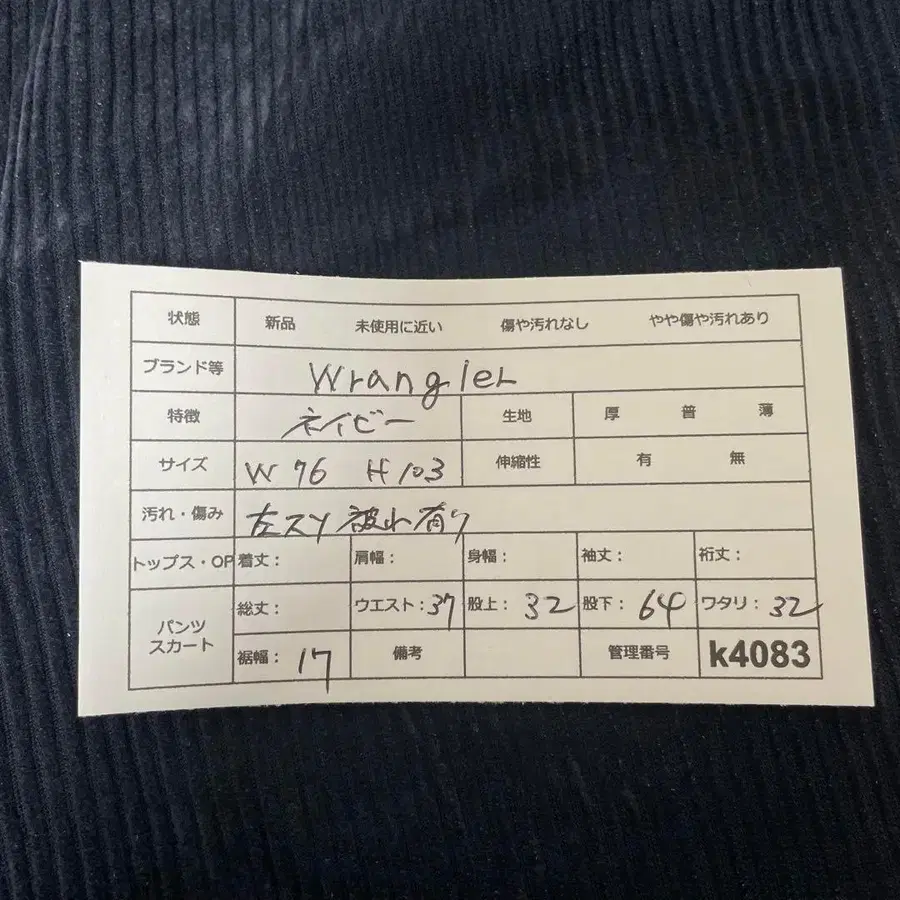 状態 新品 未使用に近い 傷や汚れなし やや傷や汚れあり
ブランド等 Wrangler
特徴 ネイビー 生地 厚 普 薄
サイズ W 76 H 103 伸縮性 有 無
汚れ・傷み 左スソ 破れ有り
トップス・OP 着丈: 肩幅: 身幅: 袖丈: 裄丈:
パンツ スカート 総丈: ウエスト:37 股上:32 股下:64 ワタリ:32
裾幅:17 備考 管理番号 k4083